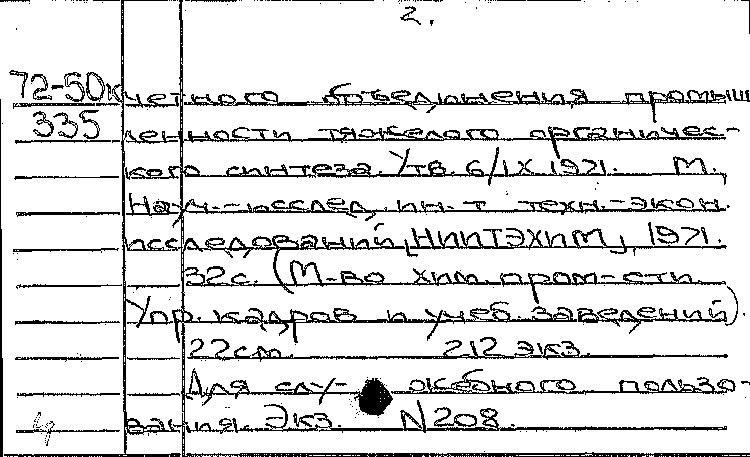 2.
72-50к четного объединения промыш
335 ленности тяжелого органичес-
кого синтеза. Утв. 6/IX 1971. М.,
Науч.-исслед. ин-т техн.-экон.
исследований "НИИТЭХИМ", 1971.
32с. (М-во хим. пром-сти.
Упр. кадров и учеб. заведений).
22см. 212 экз.
Для слу- жебного пользо-
вания. Экз. N208.